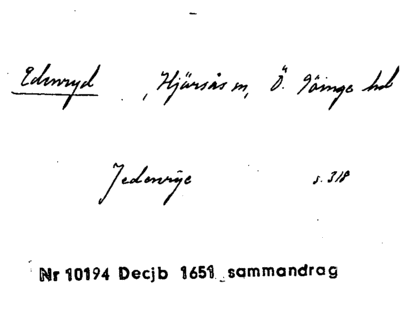 Edenryd , Hjärsås sn, Ö. Göinge hd
Jedenrÿe s. 318
Nr 10194 Decjb 1651 sammandrag